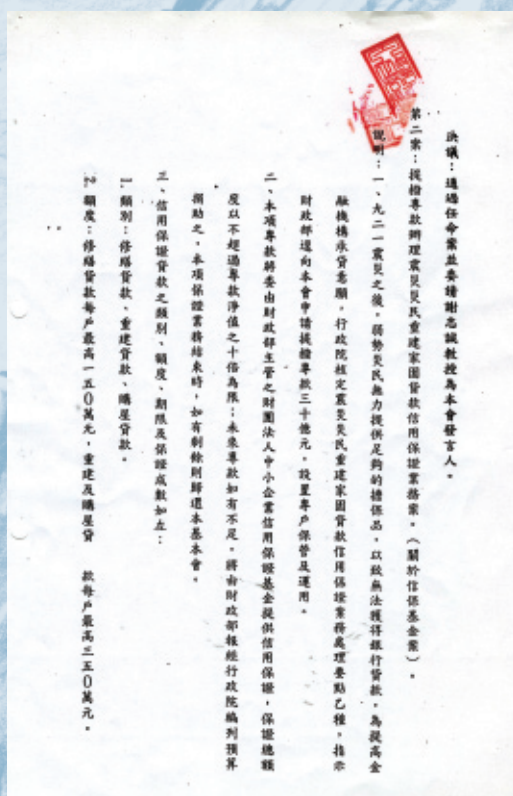 決議：通過任命案並委請謝志誠教授為本會發言人。
第二案：提撥專款辦理震災災民重建家園貸款信用保證業務案。（關於信保基金案）。
說明：一、九二一震災之後，弱勢災民無力提供足夠的擔保品，以致無法獲得銀行貸款，為提高金
融機構承貸意願，行政院核定震災災民重建家園貸款信用保證業務處理要點乙種，指示
財政部逕向本會申請提撥專款三十億元，設置專戶保管及運用。
二、本項專款將委由財政部主管之財團法人中小企業信用保證基金提供信用保證，保證總額
度以不超過專款淨值之十倍為限；未來專款如有不足，將由財政部報經行政院編列預算
撥助之。本項保證業務結束時，如有剩餘則歸還本基本會。
三、信用保證貸款之類別、額度、期限及保證成數如左：
1. 類別：修繕貸款、重建貸款、購屋貸款。
2. 額度：修繕貸款每戶最高一五０萬元，重建及購屋貸 款每戶最高三五０萬元。